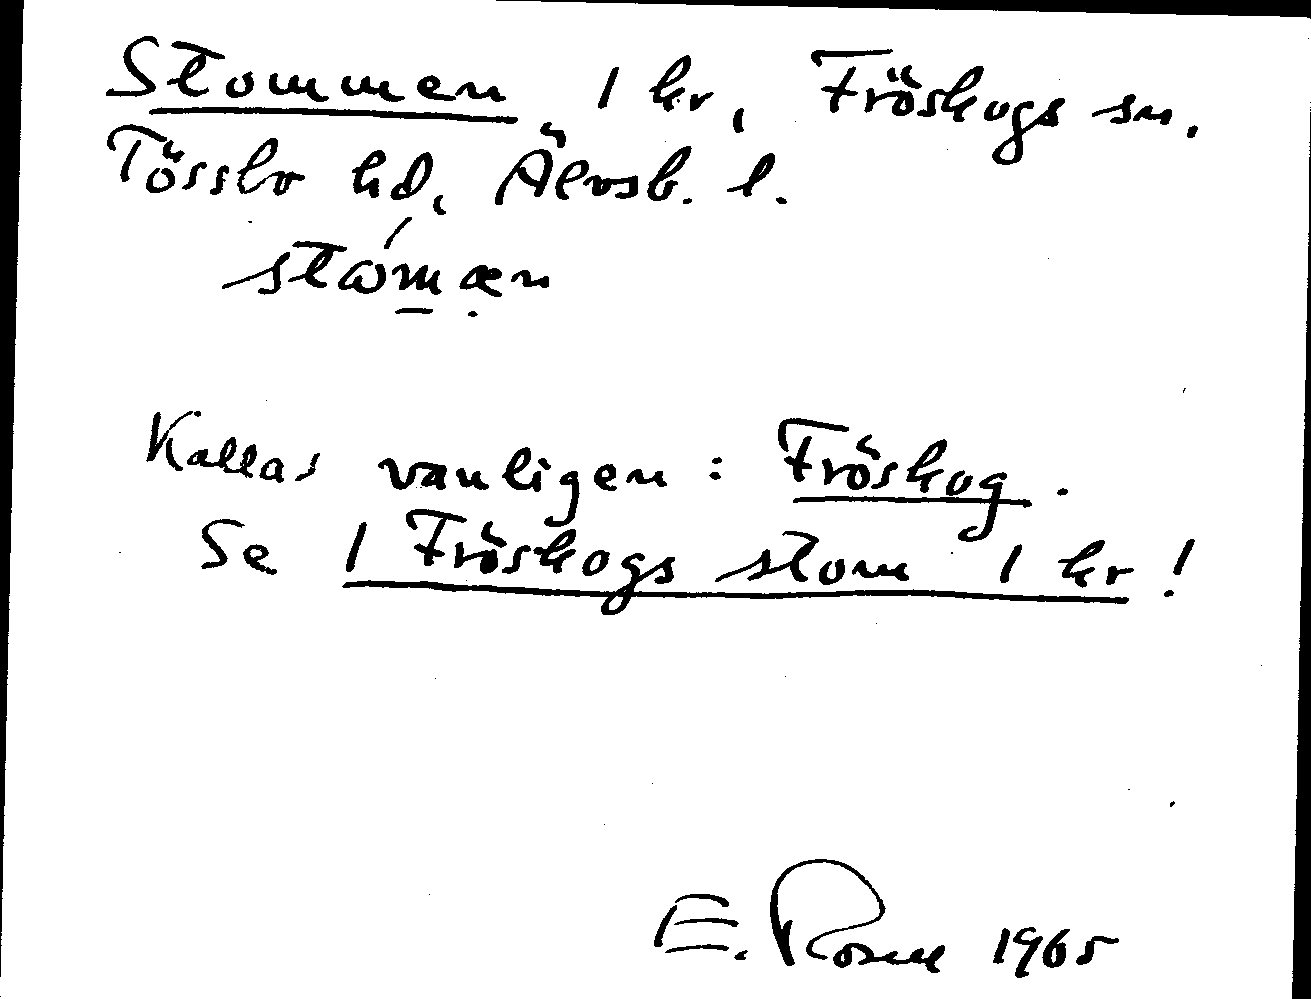 Stommen, 1 hr, Fröskogs sn.
Tössbo hd, Älvsb. l.
stòmæn
Kallas vanligen: Fröskog.
Se 1 Fröskogs stom 1 hr!
E. Rosell 1965